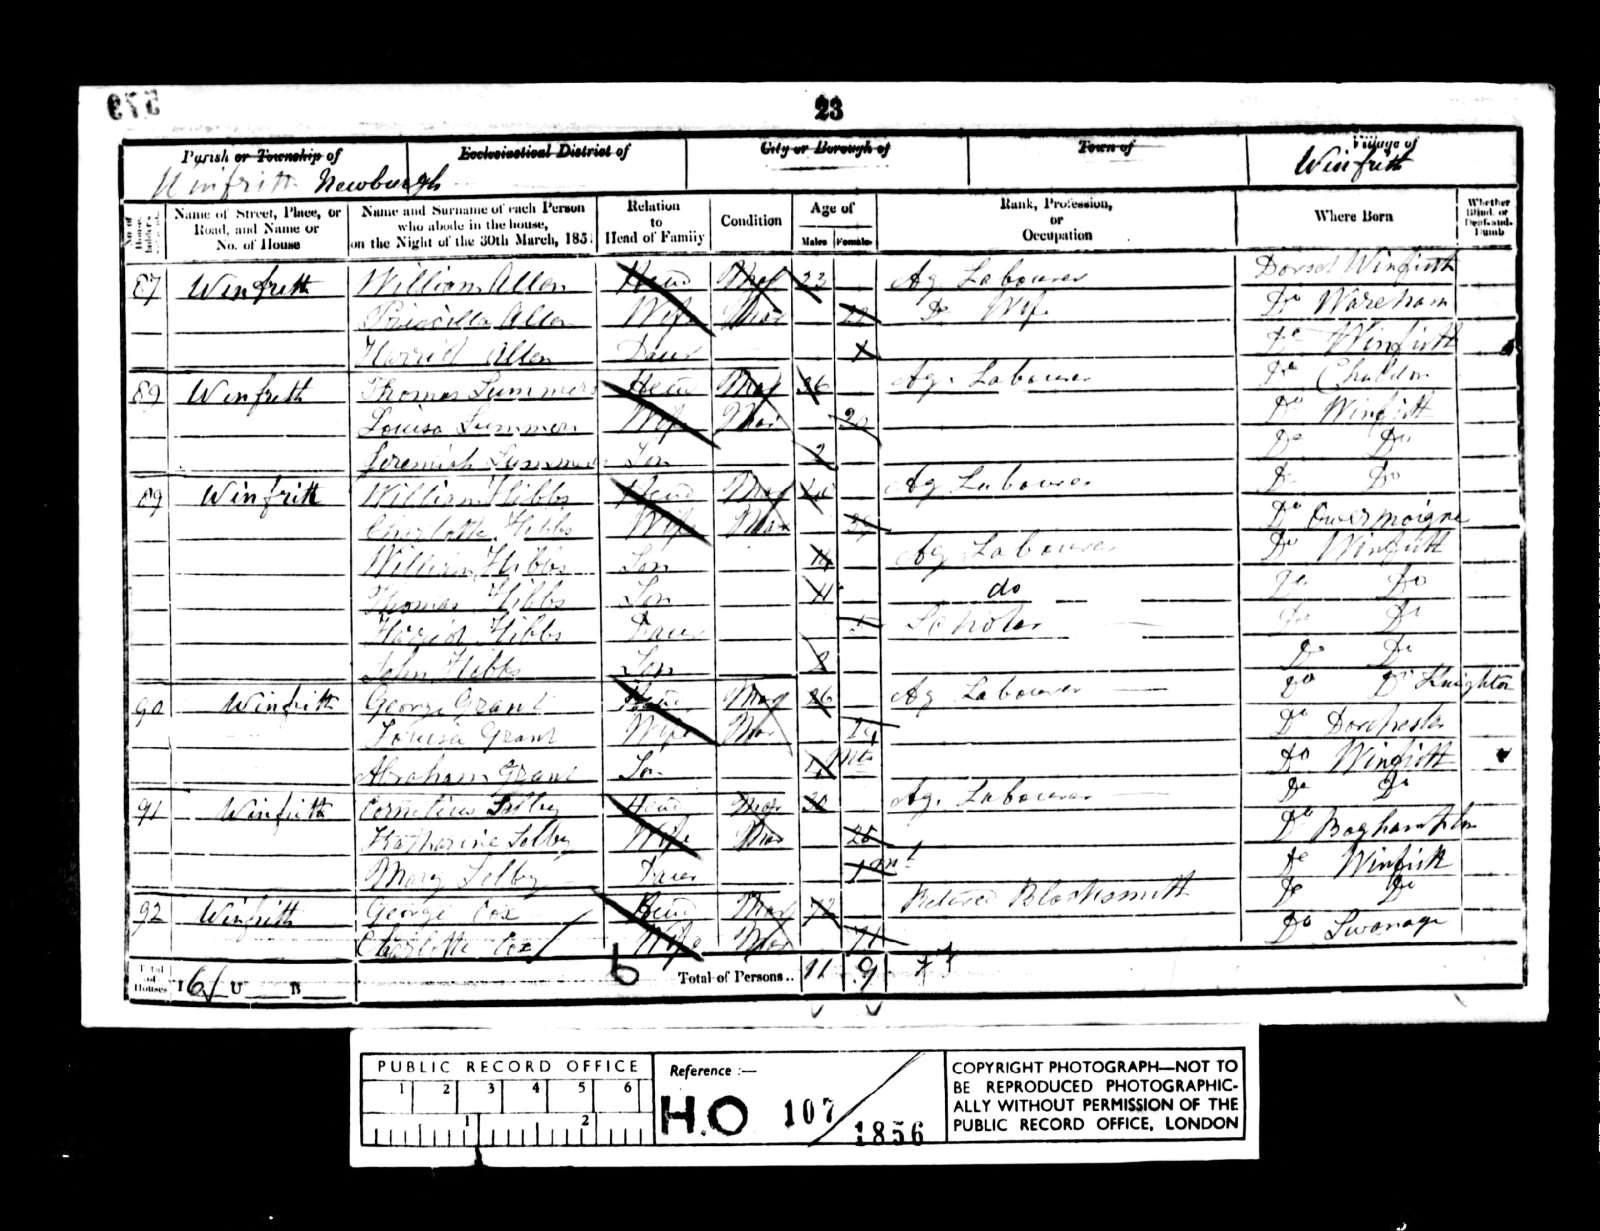 23
Parish or Township of Ecclesiastical District of City or Borough of Town of Village of
Winfrith Newburgh Winfrith
Name of Street, Place, or Road, and Name or No. of House
Name and Surname of each Person who abode in the house, on the Night of the 30th March, 1851
Relation to Head of Family
Condition
Age of
Males Females
Rank, Profession, or Occupation
Where Born
Whether Blind, or Deaf-and-Dumb
87 Winfrith William Allen Head Mar 23 Ag Labourer Dorset Winfrith
Priscilla Allen Wife Mar Do Wife Do Wareham
Harriet Allen Daur Do Winfrith
89 Winfrith Thomas Summers Head Mar 26 Ag. Labourer Do Chaldon
Louisa Summers Wife Mar 20 Do Winfrith
Jeremiah Summers Son 2 Do Do
89 Winfrith William Hibbs Head Mar Ag Labourer Do Do
Charlotte Hibbs Wife Mar 39 Do Owermoigne
William Hibbs Son Ag Labourer Do Winfrith
Thomas Hibbs Son 11 do Do Do
Harriet Hibbs Daur Scholar Do Do
John Hibbs Son 2 Do Do
90 Winfrith George Grant Head Mar 26 Ag Labourer Do Do Knighton
Louisa Grant Wife Mar Do Dorchester
Abraham Grant Son Mts Do Winfrith
91 Winfrith Cornelius Selby Head Mar 30 Ag. Labourer Do Do
Katharine Selby Wife Mar 25 Do
Mary Selby Daur 1 mt Do Winfrith
92 Winfrith George Cox Head Mar 72 Retired Blacksmith Do Do
Charlotte Cox Wife Mar 71 Do Swanage
Total of Houses I 6 U B 6 Total of Persons.. 11 9
PUBLIC RECORD OFFICE
1 2 3 4 5 6
1 2
Reference :—
H.O 107/1856
COPYRIGHT PHOTOGRAPH—NOT TO
BE REPRODUCED PHOTOGRAPHIC-
ALLY WITHOUT PERMISSION OF THE
PUBLIC RECORD OFFICE, LONDON